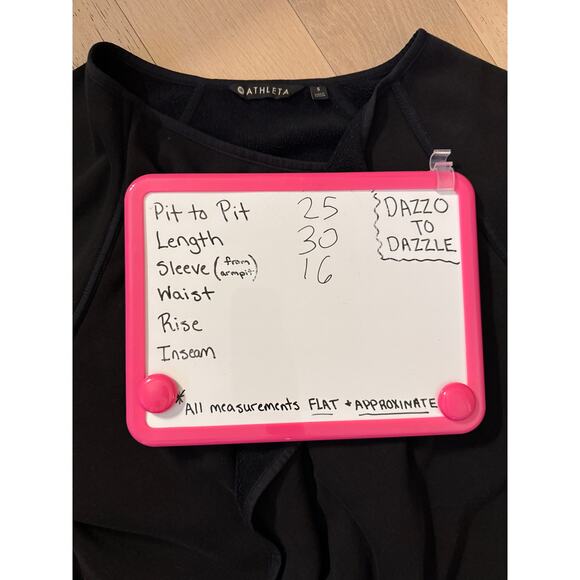 ATHLETA
S
Pit to Pit 25
Length 30
Sleeve (from armpit) 16
Waist
Rise
Inseam
DAZZO
TO
DAZZLE
*All measurements FLAT + APPROXIMATE